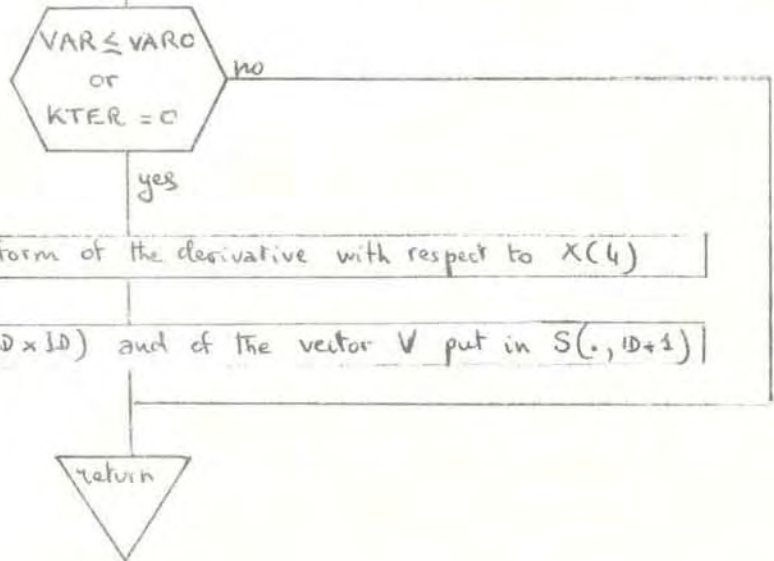 VAR ≤ VARO
or
KTER = 0
no
yes
form of the derivative with respect to X(4)
D x ID) and of the vector V put in S(., ID+1)
return